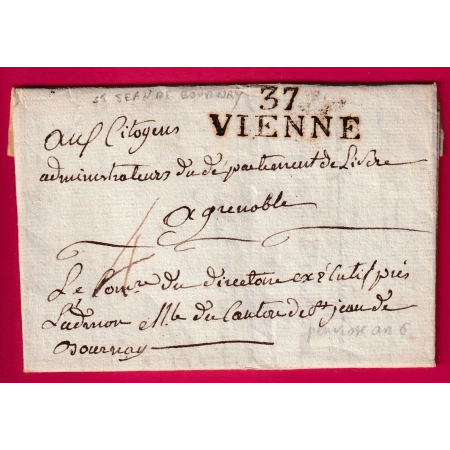 St JEAN DE BOURNAY
37
VIENNE
aux Citoyens
administrateurs du departement de Lisere
a grenoble
4
Le Comre du directoire exécutif près
Ladmon Mle du Canton de St jean de
Bournay
pluviose an 6